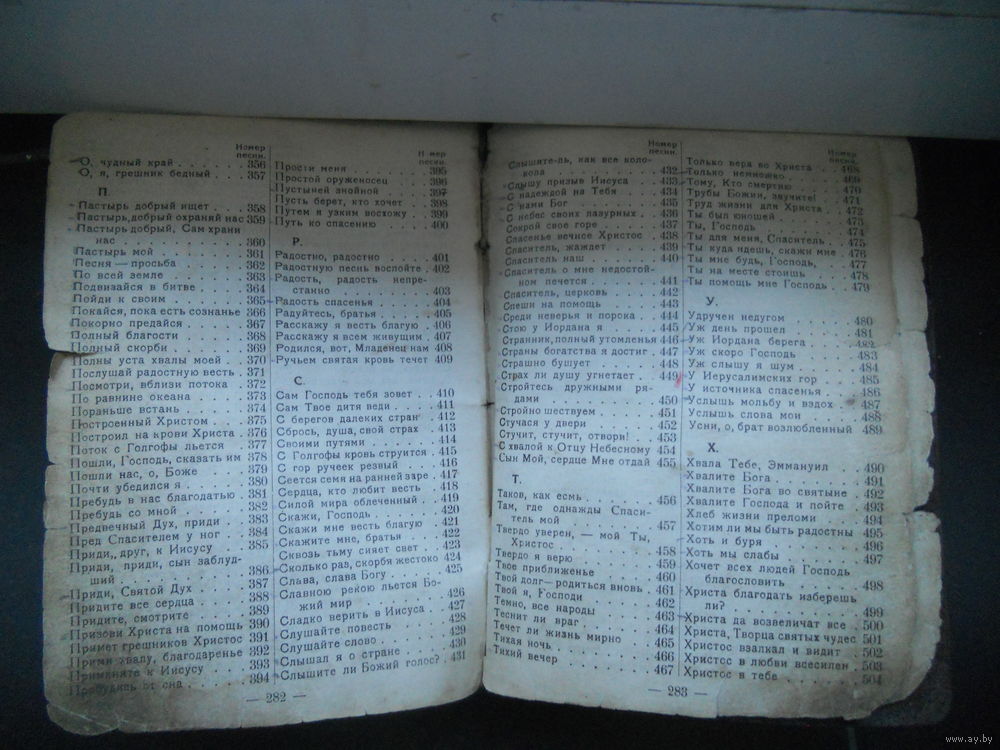 Номер
песни.
О, чудный край . . . . . . 356
О, я, грешник бедный . . . . 357
П.
Пастырь добрый ищет . . . . 358
Пастырь, добрый охраняй нас 359
Пастырь добрый, Сам храни
нас . . . . . . . . 360
Пастырь мой . . . . . . . 361
Песня — просьба . . . . . . 362
По всей земле . . . . . . 363
Подвизайся в битве . . . . 364
Пойди к своим . . . . . . 365
Покайся, пока есть сознанье 366
Покорно предайся . . . . . 367
Полный благости . . . . . 368
Полный скорби . . . . . . 369
Полны уста хвалы моей . . . 370
Послушай радостную весть . 371
Посмотри, вблизи потока . . 372
По равнине океана . . . . 373
Пораньше встань . . . . . 374
Построенный Христом . . . . 375
Построил на крови Христа . 376
Поток с Голгофы льется . . 377
Пошли, Господь, сказать им 378
Пошли нас, о, Боже . . . . 379
Почти убедился я . . . . . 380
Пребудь в нас благодатью . 381
Пребудь со мной . . . . . 382
Предвечный Дух, приди . . . 383
Пред Спасителем у ног . . . 384
Приди, друг, к Иисусу . . . 385
Приди, приди, сын заблуд-
ший . . . . . . . . 386
Приди, Святой Дух . . . . 387
Придите все сердца . . . . 388
Придите, смотрите . . . . . 389
Призови Христа на помощь . 390
Примет грешников Христос 391
Прими хвалу, благодаренье 392
Примкните к Иисусу . . . . 393
Пробудись от сна . . . . . 394
— 282 —
Номер
песни.
Прости меня . . . . . . . 395
Простой оруженосец . . . . 396
Пустыней знойной . . . . . 397
Пусть берет, кто хочет . . . 398
Путем я узким восхожу . . . 399
Путь ко спасению . . . . . 400
Р.
Радостно, радостно . . . . . 401
Радостную песнь воспойте . 402
Радость, радость непре-
станно . . . . . . . 403
Радость спасенья . . . . . 404
Радуйтесь, братья . . . . . 405
Расскажу я весть благую . . 406
Расскажу я всем живущим . 407
Родился, вот, Младенец нам 408
Ручьем святая кровь течет 409
С.
Сам Господь тебя зовет . . 410
Сам Твое дитя веди . . . . 411
С берегов далеких стран . . 412
Сбрось, душа, свой страх . . 413
Своими путями . . . . . . 414
С Голгофы кровь струится . 415
С гор ручеек резвый . . . . 416
Сеется семя на ранней заре . 417
Сердца, кто любит весть . . 418
Силой мира облеченный . . . 419
Скажи, Господь . . . . . . 420
Скажи мне весть благую . . 421
Скажите мне, братья . . . . 422
Сквозь тьму сияет свет . . . 423
Сколько раз, скорбя жестоко 424
Слава, слава Богу . . . . . 425
Славною рекою льется Бо-
жий мир . . . . . . 426
Сладко верить в Иисуса . . 427
Слушайте повесть . . . . . 428
Слушайте слово . . . . . . 429
Слышал я о стране . . . . 430
Слышите ли Божий голос? . 431
Номер
песни.
Слышите-ль, как все коло-
кола . . . . . . . . 432
Слышу призыв Иисуса . . . 433
С надеждой на Тебя . . . . 434
С нами Бог . . . . . . . 435
С небес своих лазурных . . 436
Сокрой свое горе . . . . . 437
Спасенье вечное Христос . . 438
Спаситель, жаждет . . . . . 439
Спаситель наш . . . . . . 440
Спаситель о мне недостой-
ном печется . . . . . 441
Спаситель, церковь . . . . 442
Спеши на помощь . . . . . 443
Среди неверья и порока . . 444
Стою у Иордана я . . . . . 445
Странник, полный утомленья 446
Страны богатства я достиг . 447
Страшно бушует . . . . . . 448
Страх ли душу угнетает . . 449
Стройтесь дружными ря-
дами . . . . . . . . 450
Стройно шествуем . . . . . 451
Стучася у двери . . . . . . 452
Стучит, стучит, отвори! . . 453
С хвалой к Отцу Небесному 454
Сын Мой, сердце Мне отдай 455
Т.
Таков, как есмь . . . . . . 456
Там, где однажды Спаси-
тель мой . . . . . . 457
Твердо уверен, — мой Ты,
Христос . . . . . . . 458
Твердо я верю . . . . . . 459
Твое приближенье . . . . . 460
Твой долг — родиться вновь . 461
Твой я, Господи . . . . . . 462
Темно, все народы . . . . . 463
Теснит ли враг . . . . . . 464
Течет ли жизнь мирно . . . 465
Тихая ночь . . . . . . . . 466
Тихий вечер . . . . . . . 467
— 283 —
Номер
песни.
Только вера во Христа . . . 468
Только немножко . . . . . 469
Тому, Кто смертию . . . . . 470
Трубы Божии, звучите! . . . 471
Труд жизни для Христа . . . 472
Ты был юношей . . . . . . 473
Ты, Господь . . . . . . . 474
Ты для меня, Спаситель . . 475
Ты куда идешь, скажи мне . 476
Ты мне будь, Господь, . . . 477
Ты на месте стоишь . . . . 478
Ты помощь мне Господь . . 479
У.
Удручен недугом . . . . . 480
Уж день прошел . . . . . . 481
Уж Иордана берега . . . . . 482
Уж скоро Господь . . . . . 483
Уж слышу я шум . . . . . . 484
У Иерусалимских гор . . . . 485
У источника спасенья . . . . 486
Услышь мольбу и вздох . . . 487
Услышь слова мои . . . . . 488
Усни, о, брат возлюбленный 489
Х.
Хвала Тебе, Эммануил . . . 490
Хвалите Бога . . . . . . . 491
Хвалите Бога во святыне . . 492
Хвалите Господа и пойте . . 493
Хлеб жизни преломи . . . . 494
Хотим ли мы быть радостны 495
Хоть и буря . . . . . . . 496
Хоть мы слабы . . . . . . 497
Хочет всех людей Господь
благословить . . . . . 498
Христа благодать изберешь
ли? . . . . . . . . . 499
Христа да возвеличат все . . 500
Христа, Творца святых чудес 501
Христос взалкал и видит . . 502
Христос в любви всесилен . 503
Христос в тебе . . . . . . 504
www.ay.by